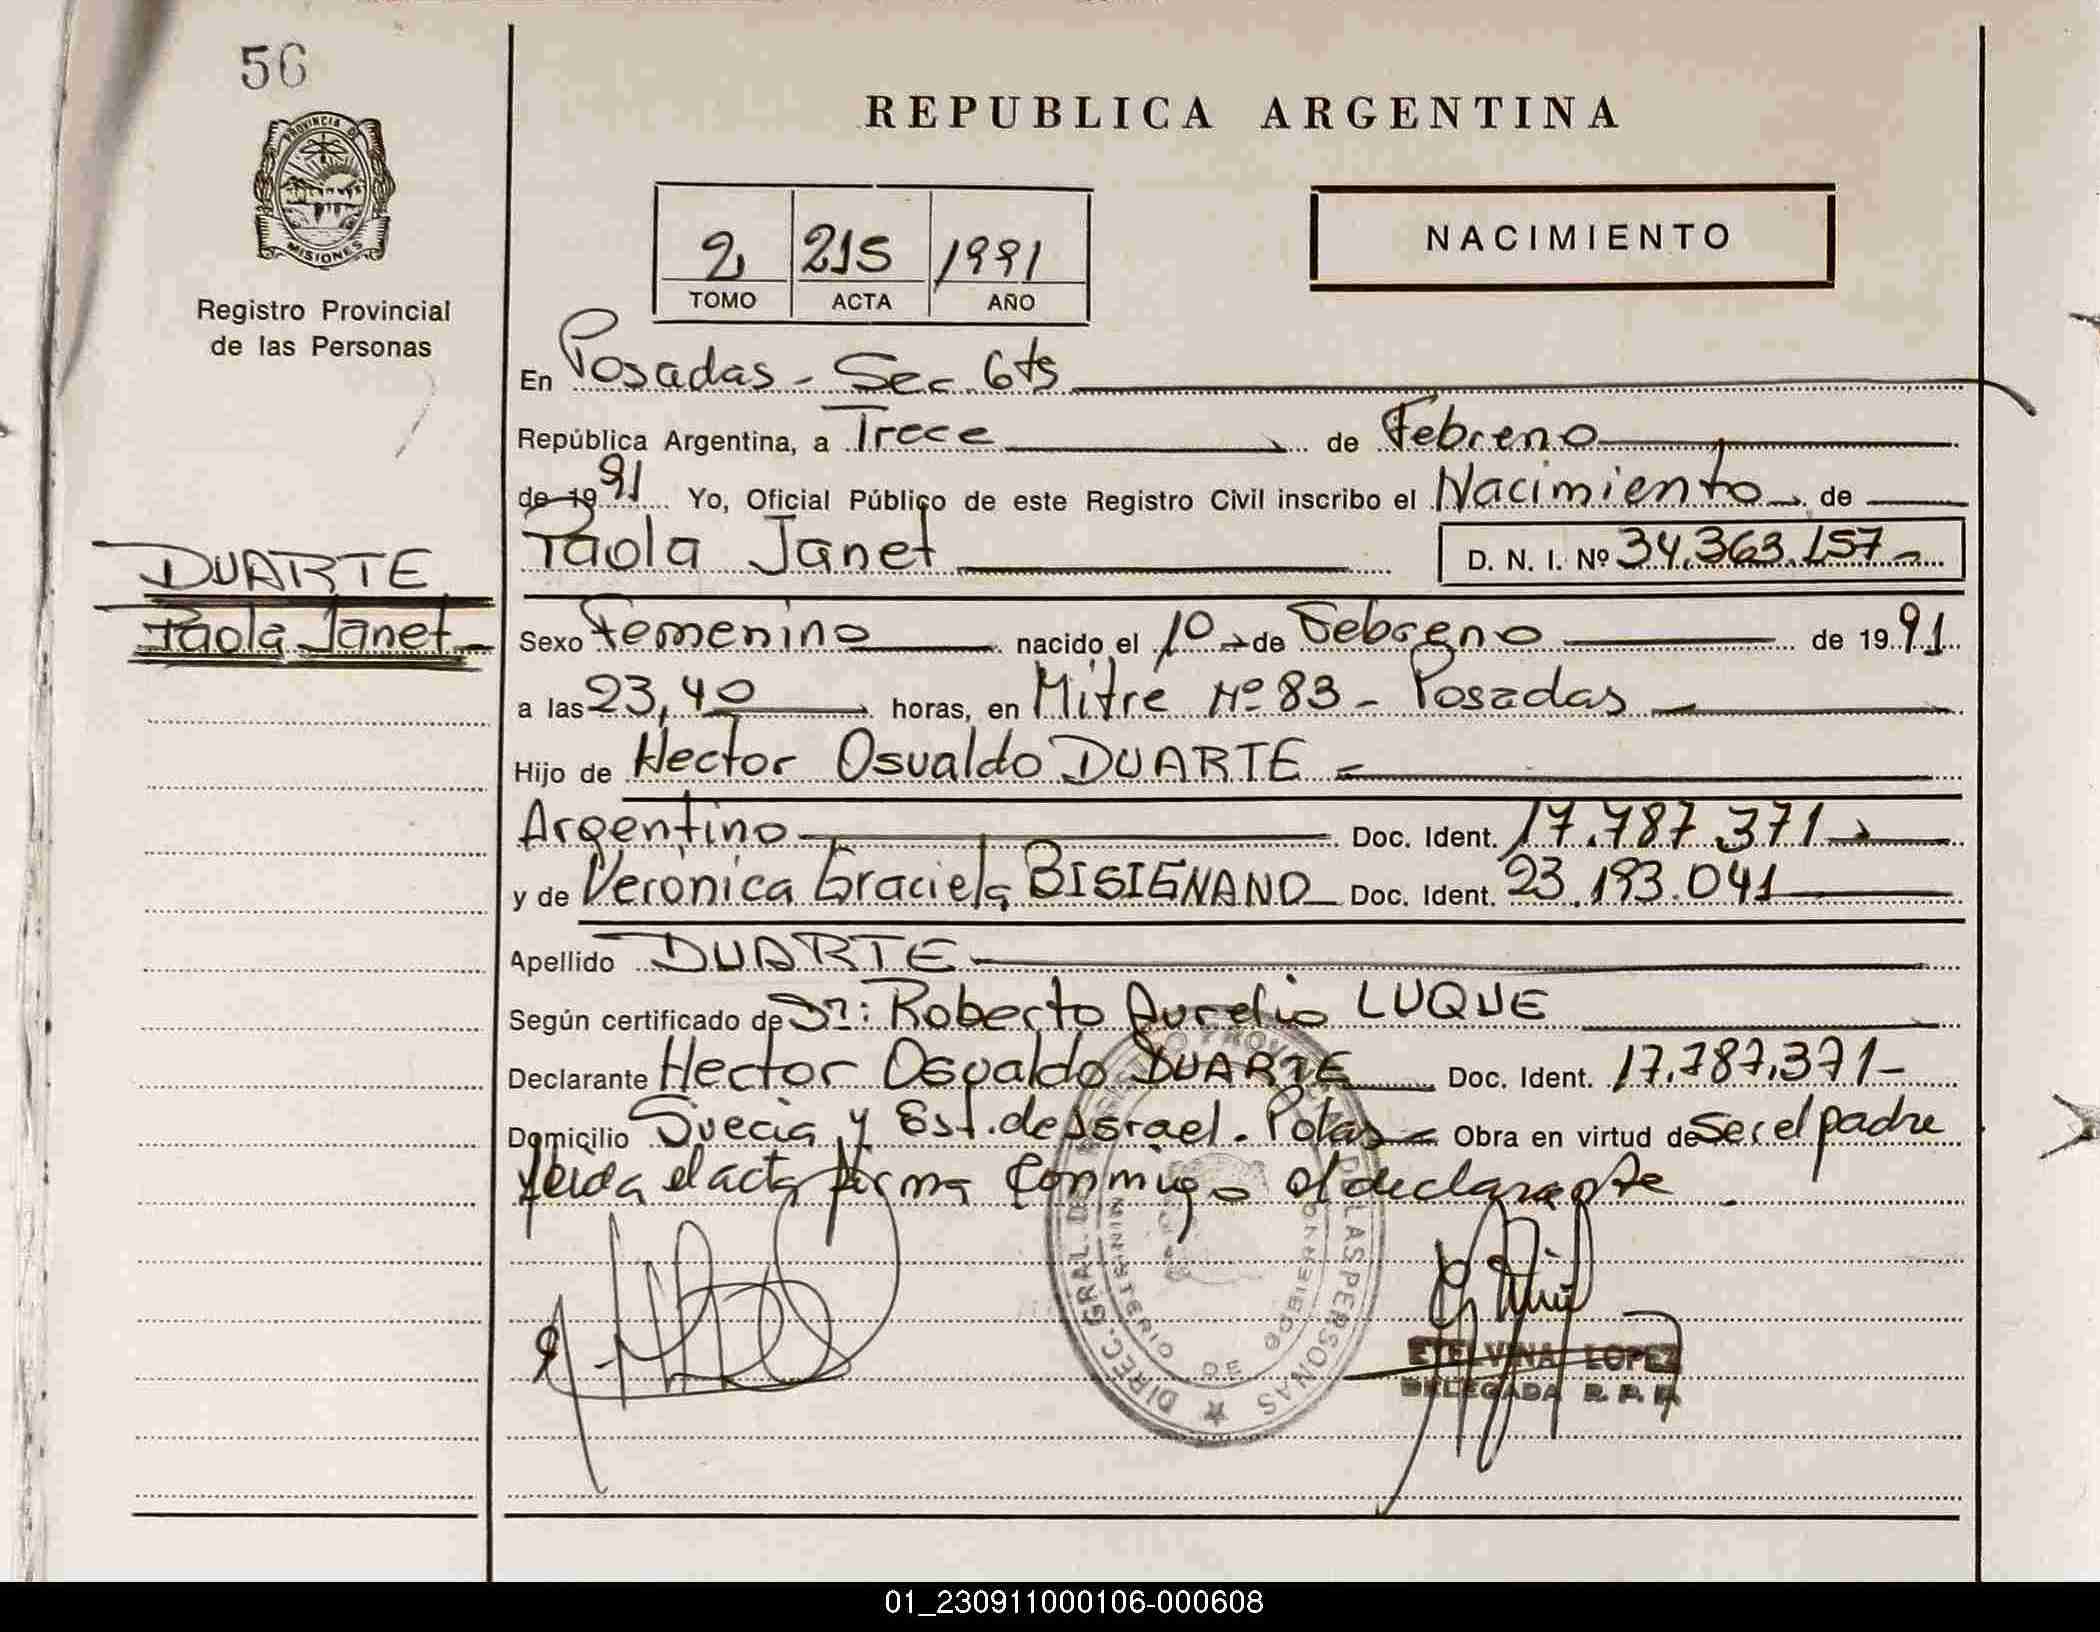 56
PROVINCIA DE
MISIONES
Registro Provincial
de las Personas
REPUBLICA ARGENTINA
2 215 1991
TOMO ACTA AÑO
NACIMIENTO
En Posadas - Sec. 6ta
República Argentina, a Trece de Febrero
de 1991 Yo, Oficial Público de este Registro Civil inscribo el Nacimiento de
Paola Janet D. N. I. Nº 34.363.157
DUARTE
Paola Janet
Sexo Femenino nacido el 10 de Febrero de 1991
a las 23,40 horas, en Mitre Nº 83 - Posadas
Hijo de Hector Osvaldo DUARTE
Argentino Doc. Ident. 17.787.371
y de Veronica Graciela BISIGNANO Doc. Ident. 23.193.041
Apellido DUARTE
Según certificado de Dr: Roberto Aurelio LUQUE
Declarante Hector Osvaldo DUARTE Doc. Ident. 17.787.371
Domicilio Suecia y Est. de Israel. Pdas Obra en virtud de Ser el padre
leida el acta firma conmigo el declarante
DIREC. GRAL. DE REGISTRO PROVINCIAL DE LAS PERSONAS
MINISTERIO DE GOBIERNO
ETELVINA LOPEZ
DELEGADA R. P. P.
01_230911000106-000608